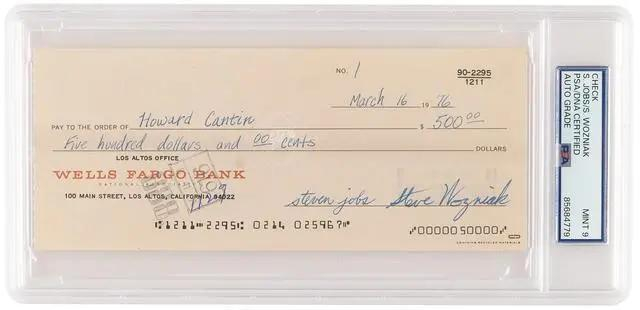 NO. 1
90-2295
1211
March 16 1976
PAY TO THE ORDER OF Howard Cantin $ 500 00
Five hundred dollars and 00 cents DOLLARS
LOS ALTOS OFFICE
WELLS FARGO BANK
100 MAIN STREET, LOS ALTOS, CALIFORNIA 94022
steven jobs Steve Wozniak
1211 2295 0214 025967 0000050000
CHECK
S. JOBS/S. WOZNIAK
PSA/DNA CERTIFIED
AUTO GRADE
PSA
MINT 9
85684779